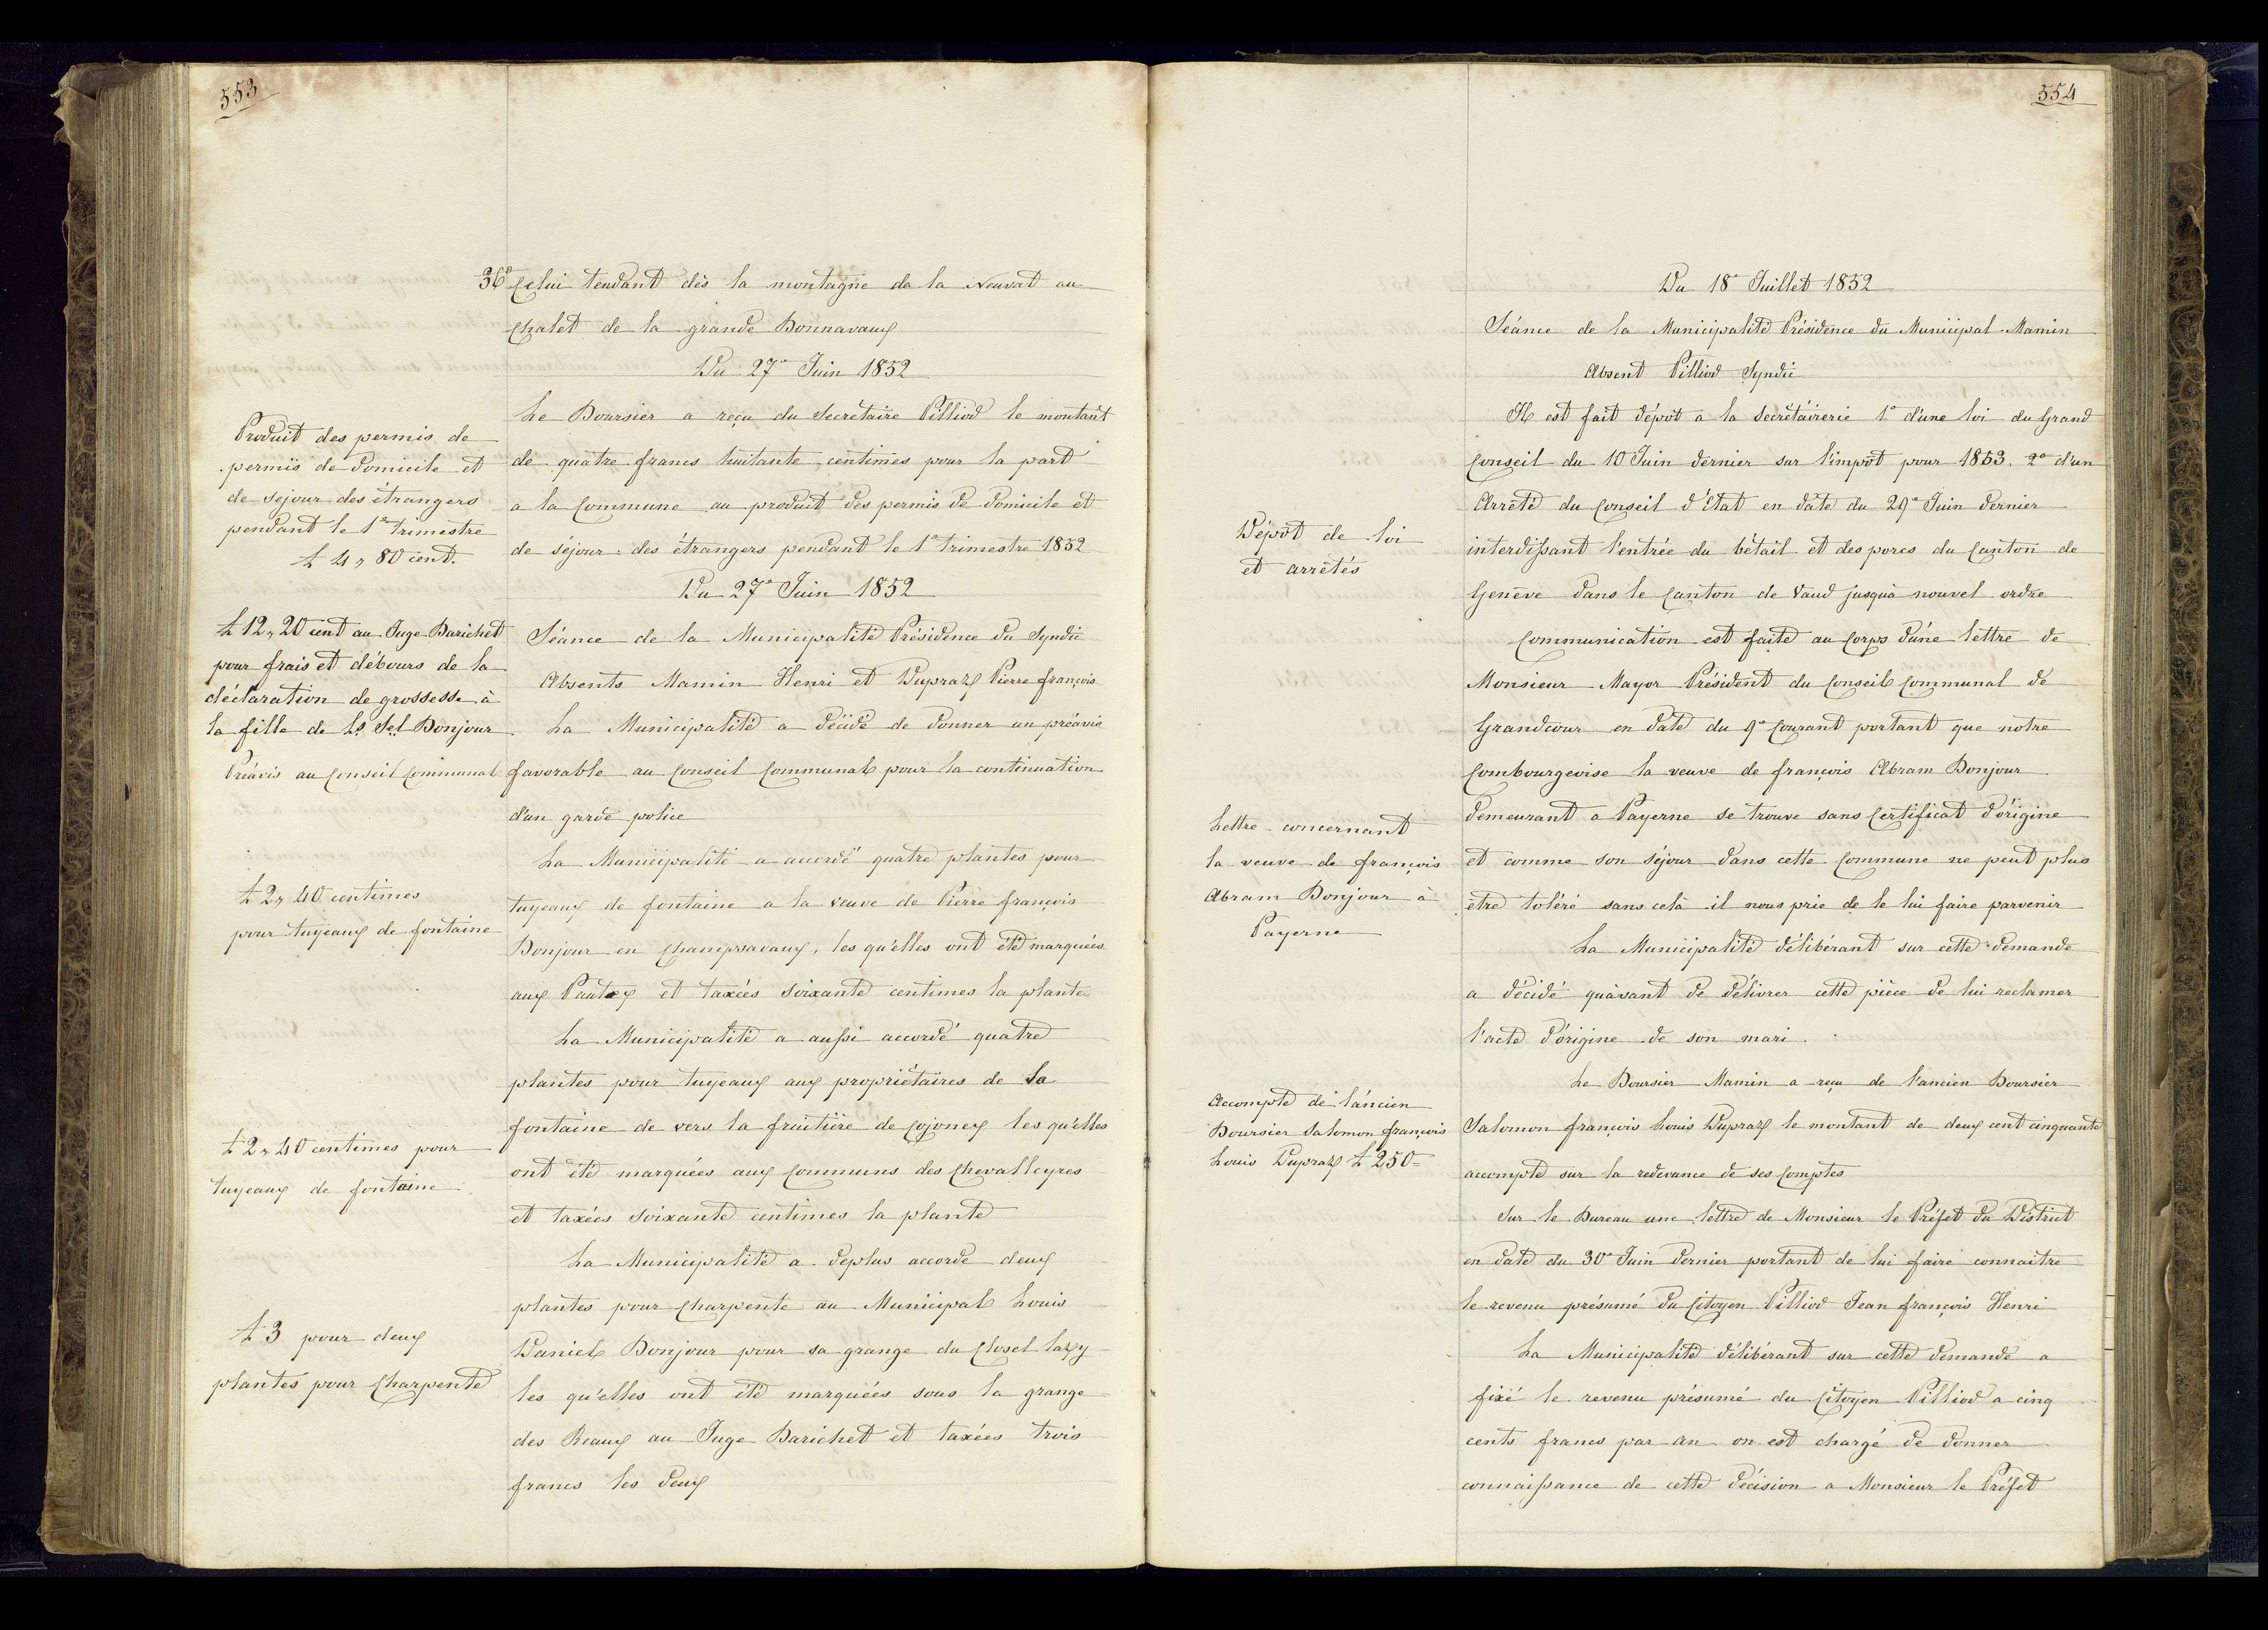 553
36° Celui tendant dès la montagne de la Neuvat au
Chalet de la grande Bonnavaux
Du 27e Juin 1852
Produit des permis de
permis de domicile et
de sejour des étrangers
pendant le 1er trimestre
£ 4,, 80 cent.
Le Boursier a reçu du Secrétaire Pilliod le montant
de quatre francs huitante centimes pour la part
a la Commune au produit des permis de domicile et
de séjour des étrangers pendant le 1e trimestre 1852
Du 27e Juin 1852
£ 12,, 20 cent au Juge Barichet
pour frais et débours de la
déclaration de grossesse à
la fille de Ls Sel Bonjour
Préavis au Conseil Communal
Séance de la Municipalité Présidence du Syndic
Absents Mamin Henri et Dupraz Pierre françois
La Municipalité a décidé de donner un préavis
favorable au Conseil Communal pour la continuation
d'un garde police
£ 2,, 40 centimes
pour tuyeaux de fontaine
La Municipalité a accordé quatre plantes pour
tuyeaux de fontaine a la veuve de Pierre françois
Bonjour en Champsavaux, les qu'elles ont été marquées
aux Pautex et taxées soixante centimes la plante
£ 2,, 40 centimes pour
tuyeaux de fontaine
La Municipalité a aussi accordé quatre
plantes pour tuyeaux aux propriétaires de la
fontaine de vers la fruitière de Cojonex les qu'elles
ont été marquées aux Communs des Chevalleyres
et taxées soixante centimes la plante
£ 3 pour deux
plantes pour Charpente
La Municipalité a deplus accordé deux
plantes pour Charpente au Municipal Louis
Daniel Bonjour pour sa grange du Closel lazy
les qu'elles ont été marquées sous la grange
des Reaux au Juge Barichet et taxées trois
francs les deux
554
Du 18e Juillet 1852
Séance de la Municipalité Présidence du Municipal Mamin
Absent Pilliod Syndic
Dépôt de loi
et arrêtés
Il est fait dépôt a la secrétairerie 1° d'une loi du Grand
Conseil du 10 Juin dernier sur l'impôt pour 1853. 2° d'un
Arrêté du Conseil d'Etat en date du 29e Juin dernier
interdissant l'entrée du bétail et des porcs du Canton de
Genève dans le Canton de Vaud jusquà nouvel ordre
Lettre concernant
la veuve de françois
Abram Bonjour à
Payerne
Communication est faite au Corps dúne lettre de
Monsieur Mayor Président du Conseil Communal de
Grandcour en date du 9e Courant portant que notre
Combourgeoise la veuve de françois Abram Bonjour
demeurant a Payerne se trouve sans Certificat d'origine
et comme son séjour dans cette Commune ne peut plus
etre toléré sans celà il nous prie de le lui faire parvenir
La Municipalité délibérant sur cette demande
a décidé quàvant de délivrer cette pièce de lui reclamer
l'acte d'origine de son mari.
Accompte de l'áncien
Boursier Salomon françois
Louis Dupraz £ 250=
Le Boursier Mamin a reçu de l'ancien Boursier
Salomon françois Louis Dupraz le montant de deux cent cinquante
accompte sur la redevance de ses Comptes
Sur le Bureau une lettre de Monsieur le Préfet du District
en date du 30e Juin dernier portant de lui faire connaitre
le revenu présumé du Citoyen Pilliod Jean françois Henri
La Municipalité délibérant sur cette demande a
fixé le revenu présumé du Citoyen Pilliod a cinq
cents francs par an on est chargé de donner
connaissance de cette décision a Monsieur le Préfet